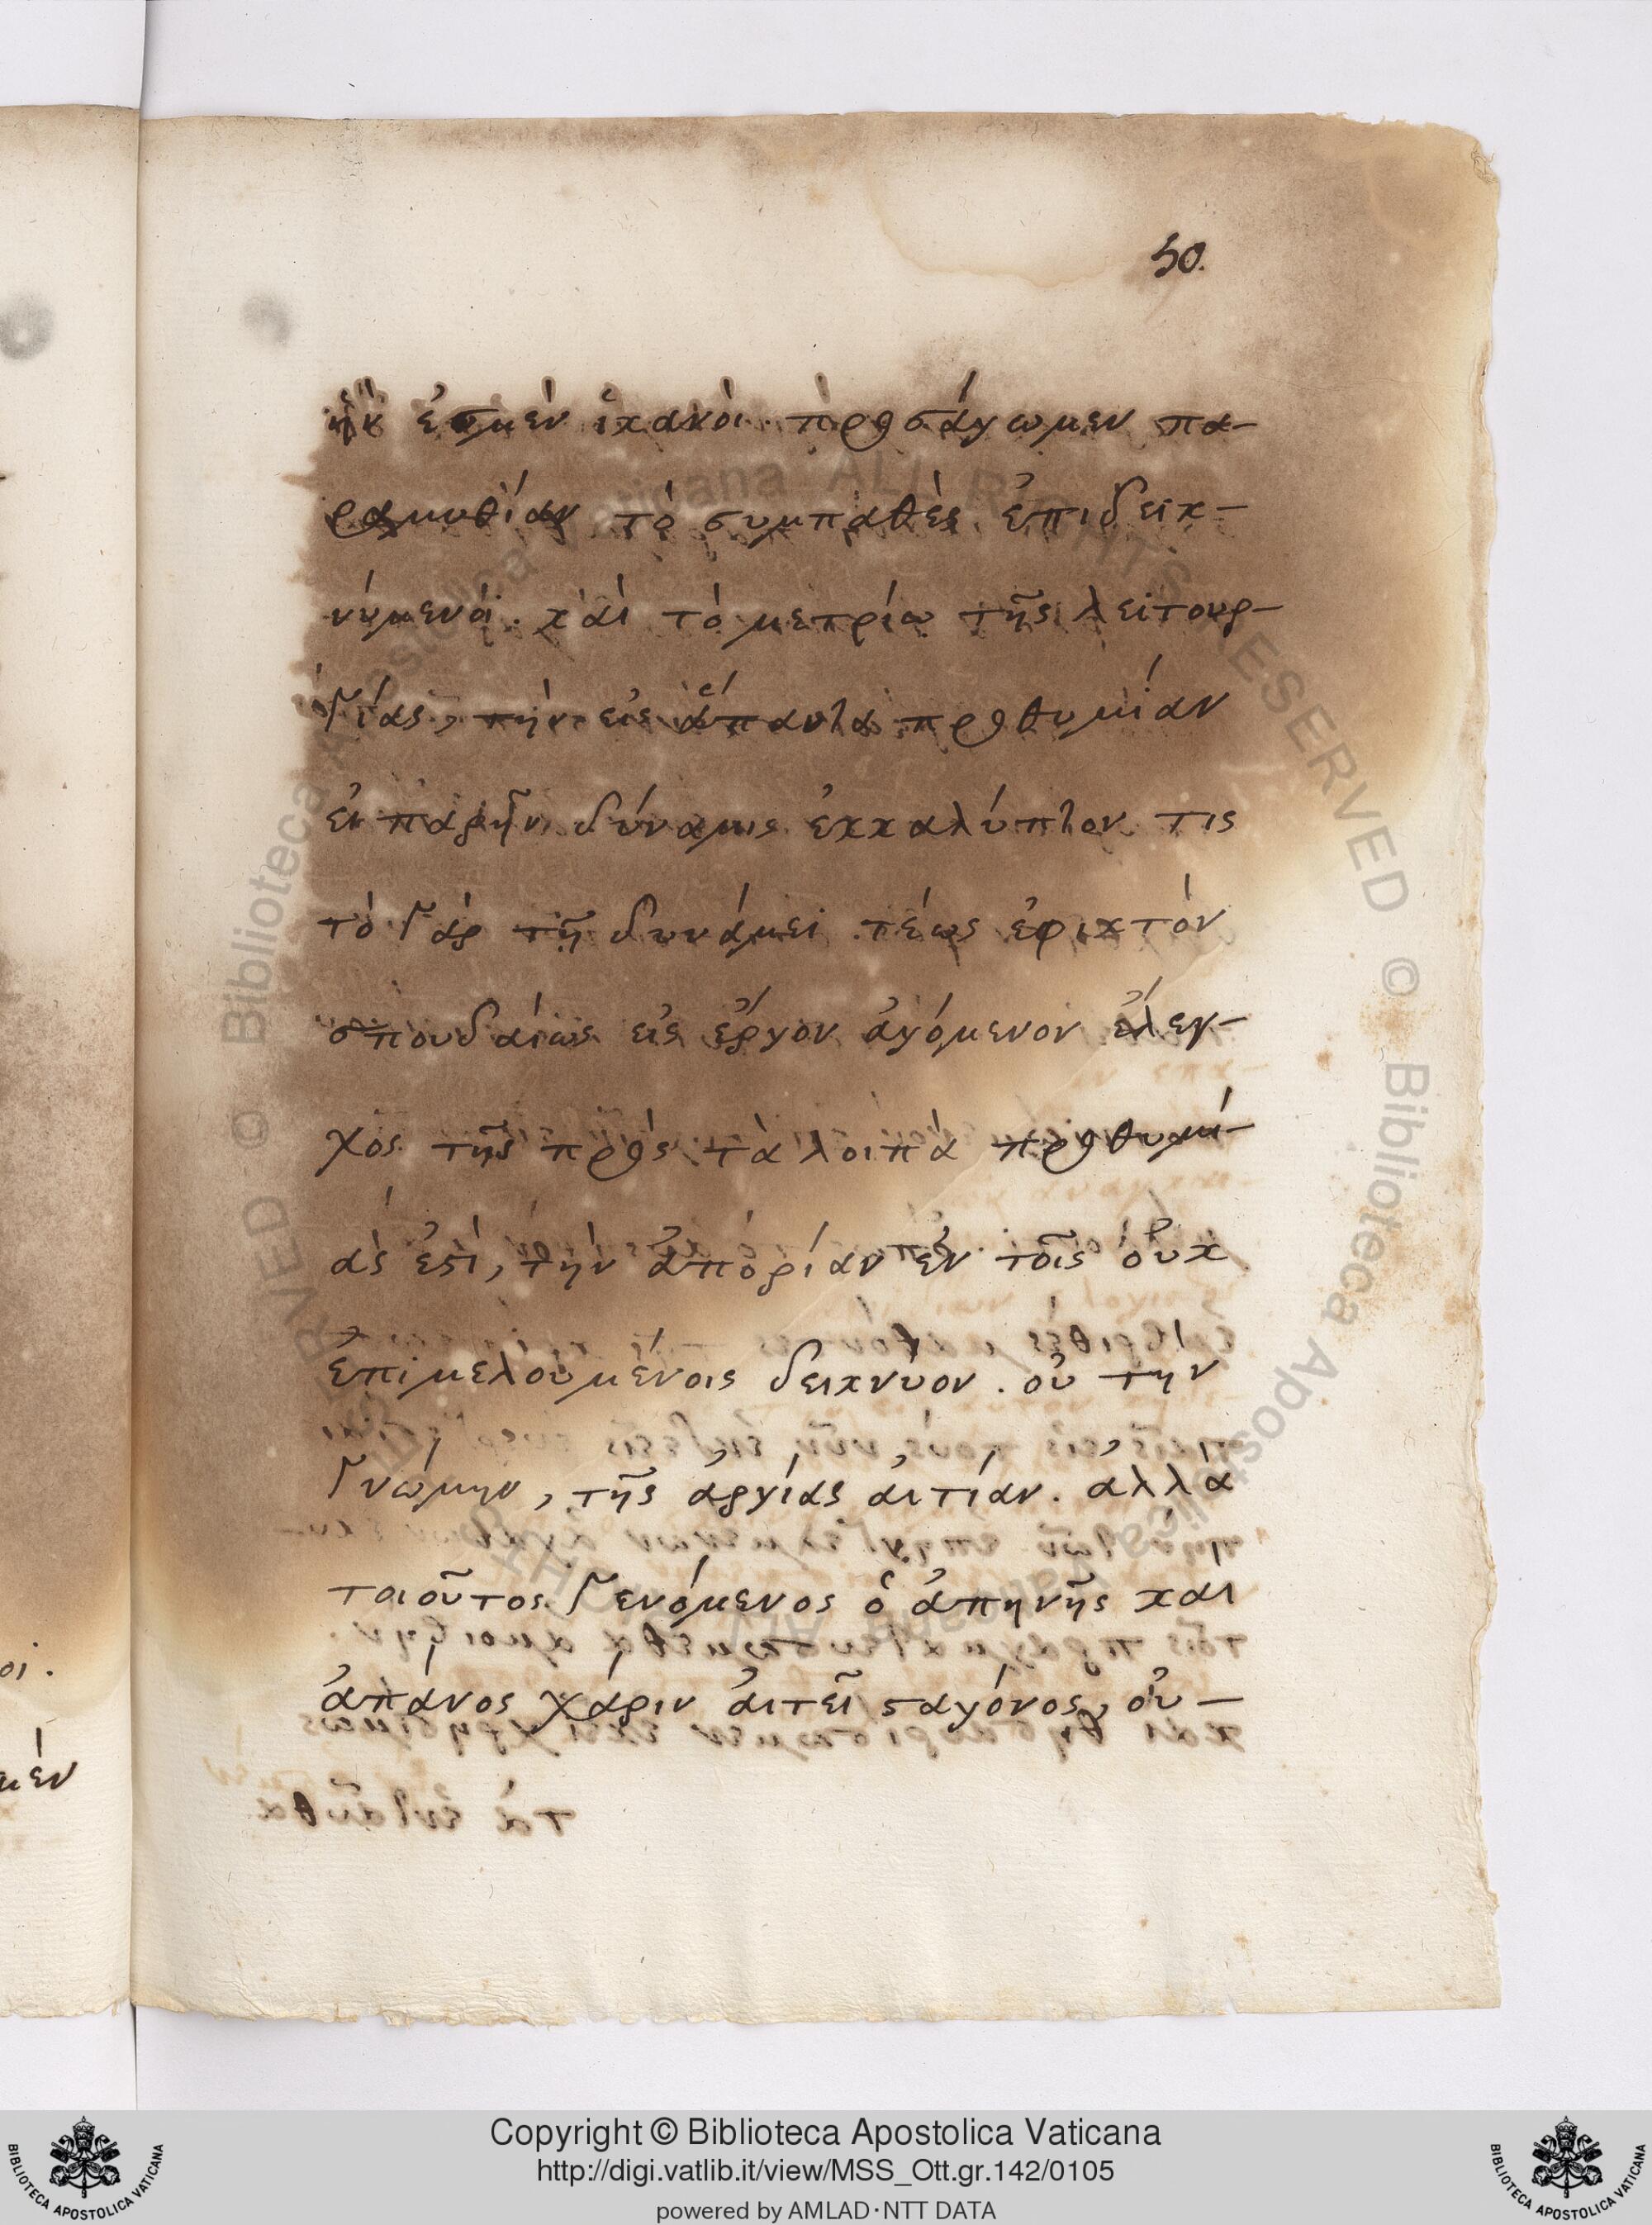 50.
ἣν ἐσμὲν ἱκανοὶ. προσάγωμεν πα-
ραμυθίαν τὸ συμπαθὲς ἐπιδεικ-
νύμενοι. καὶ τὸ μετρίω τῆς λειτουρ-
γίας, τὴν εἰς ἅπαντα προθυμίαν
εἰ παρῆν δύναμις ἐκκαλύπτον τις
τὸ γὰρ τῇ δυνάμει τέως ἐφικτὸν
σπουδαίως εἰς ἔργον ἀγόμενον ἔλεγ-
χος τῆς πρὸς τὰ λοιπὰ προθυμί-
ας ἐστὶ, τὴν ἀπορίαν ἐν τοῖς οὐκ
ἐπιμελουμένοις δεικνύον. οὐ την
γνώμην, τῆς ἀργίας ἀιτίαν. αλλὰ
τοιοῦτος γενόμενος ὁ ἀπηνῆς και
ἀπάνος χάριν ἀιτεῖ σταγόνος, οὐ-
οι.
μὲν
Copyright © Biblioteca Apostolica Vaticana
http://digi.vatlib.it/view/MSS_Ott.gr.142/0105
powered by AMLAD·NTT DATA
BIBLIOTECA APOSTOLICA VATICANA
BIBLIOTECA APOSTOLICA VATICANA